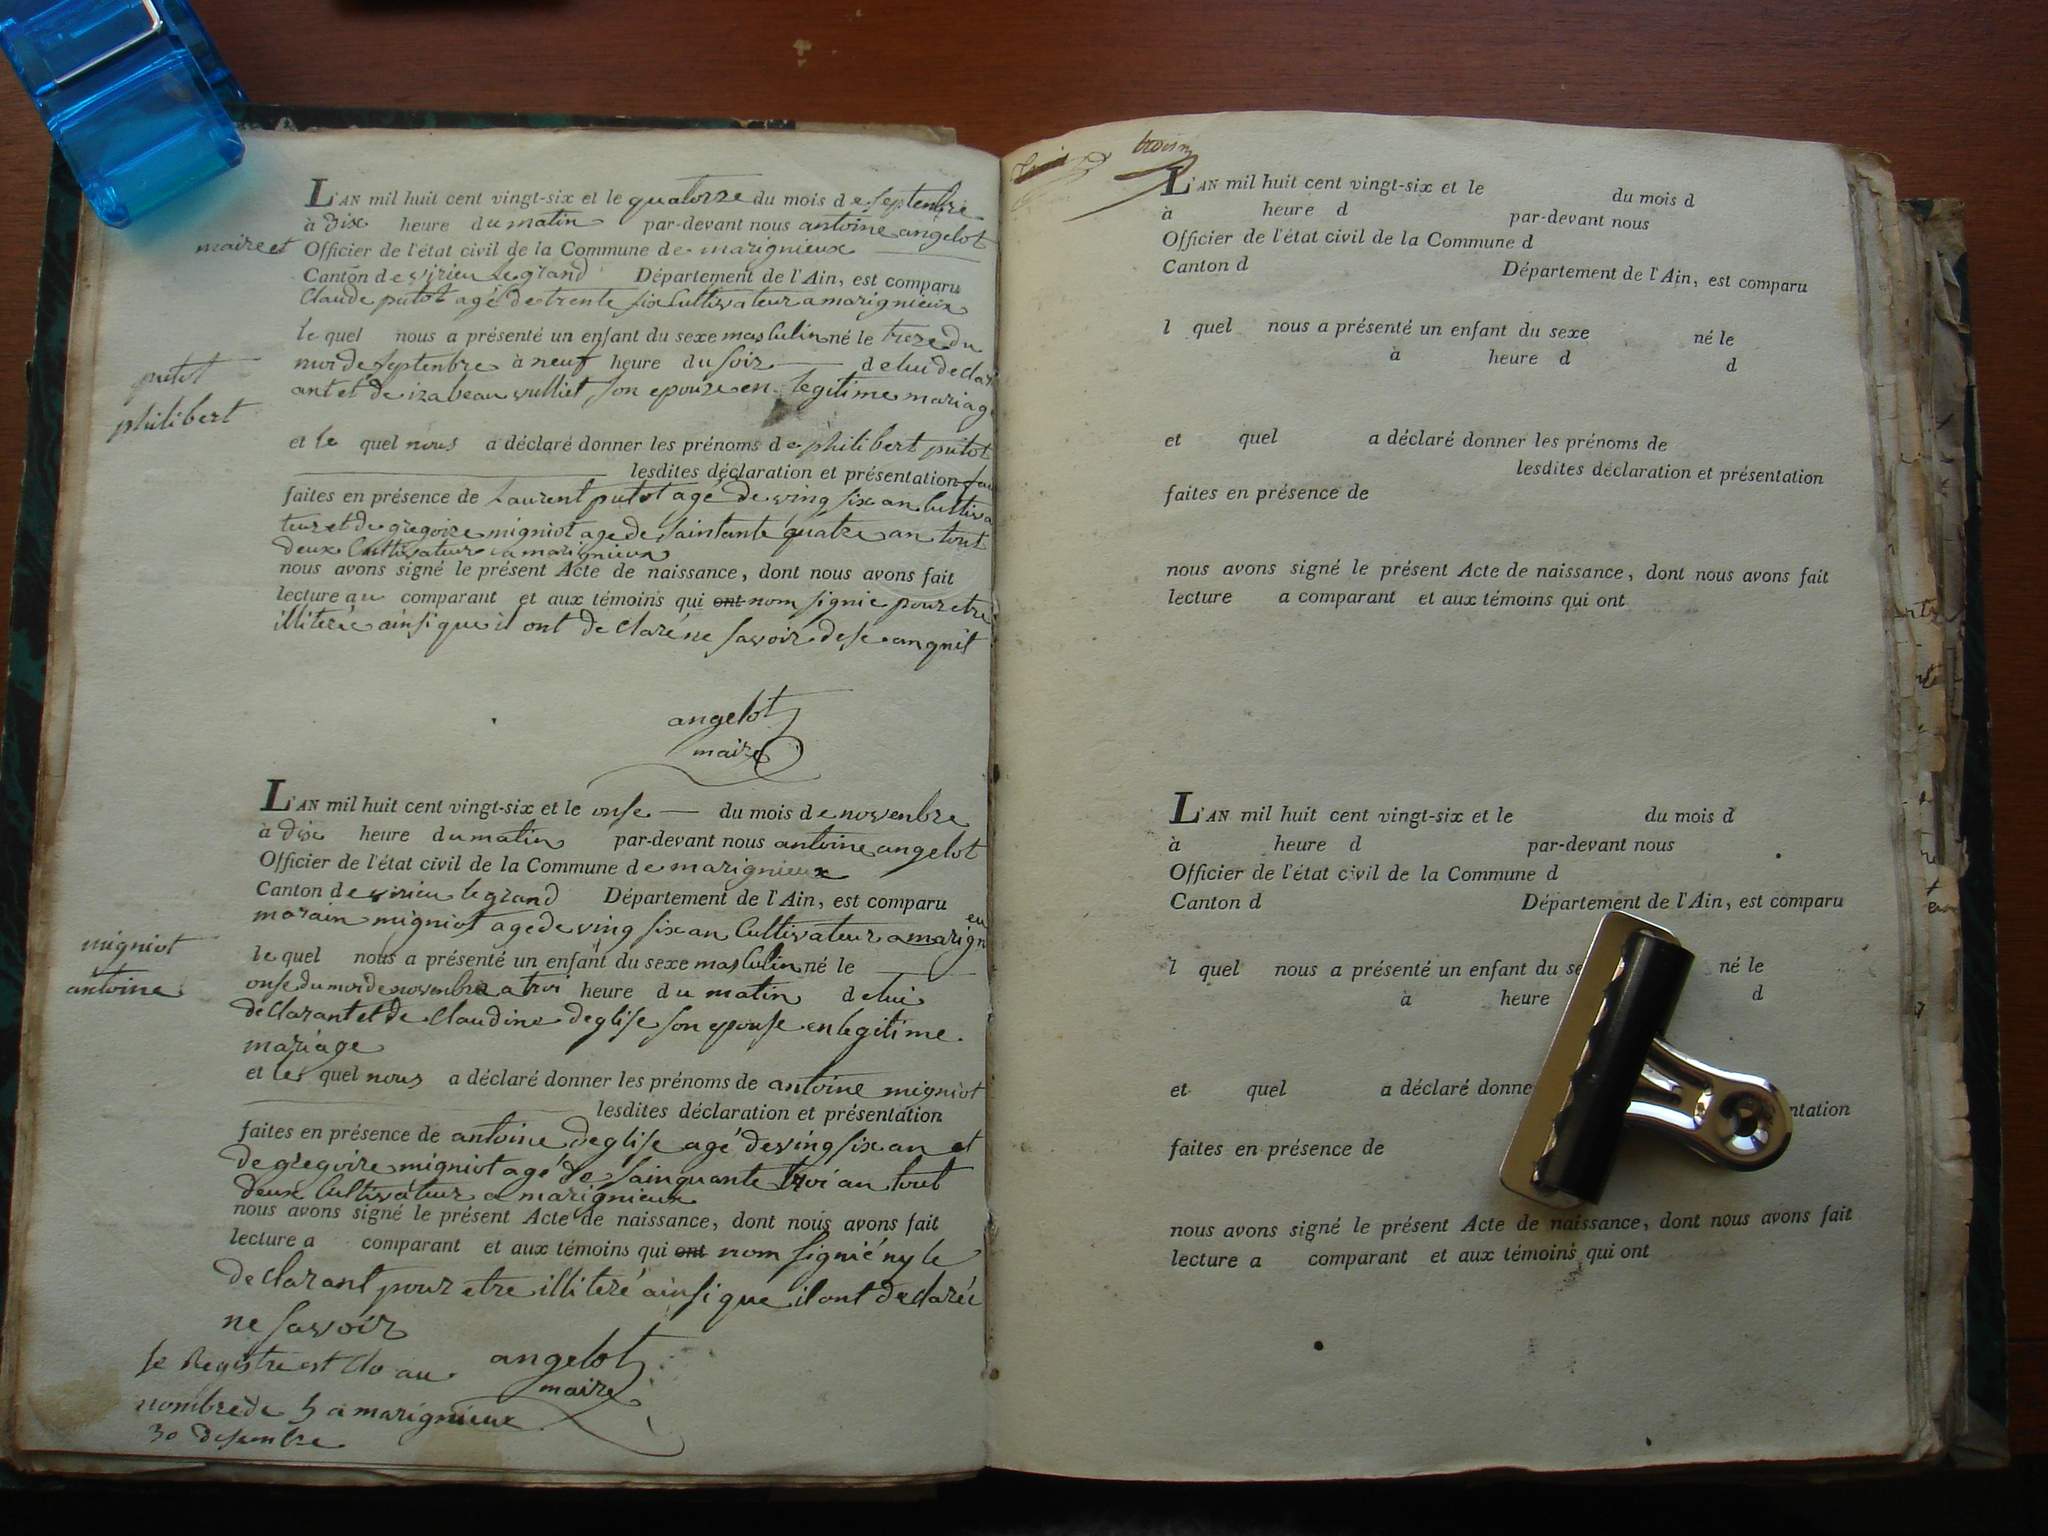 L'AN mil huit cent vingt-six et le quatorze du mois de septenbre
à dix heure du matin par-devant nous antoine angelot
maire et Officier de l'état civil de la Commune de marignieux
Canton de virieu le grand Département de l'Ain, est comparu
Claude putot agé de trente six Cultivateur a marignieux
le quel nous a présenté un enfant du sexe masculin né le treze du
moi de septenbre à neuf heure du soir de lui declar
ant et de izabeau vulliet son epouze en legitime mariage
putot
philibert
et le quel nous a déclaré donner les prénoms de philibert putot
lesdites déclaration et présentation
faites en présence de Laurent putot agé de ving six an Cultiva
teur et de gregoire migniot age de saintante quatre an tout
deux Cultivateur a marignieux
nous avons signé le présent Acte de naissance, dont nous avons fait
lecture au comparant et aux témoins qui ont nom signie pour etre
illiterie ainsi que il ont declaré ne savoir de se anquit
angelot
maire
L'AN mil huit cent vingt-six et le onse du mois de novenbre
à dix heure du matin par-devant nous antoine angelot
Officier de l'état civil de la Commune de marignieux
Canton de virieu le grand Département de l'Ain, est comparu
morain migniot age de ving six an Cultivateur a marignieu
le quel nous a présenté un enfant du sexe masculin né le
onse du moi de novenbre a troi heure du matin de lui
declarant et de Claudine deglise son epouse en legitime
mariage
migniot
antoine
et le quel nous a déclaré donner les prénoms de antoine migniot
lesdites déclaration et présentation
faites en présence de antoine deglise agé de ving six an et
de gregoire migniot agé de sainquante troi an tout
deux Cultivateur a marignieux
nous avons signé le présent Acte de naissance, dont nous avons fait
lecture a comparant et aux témoins qui ont nom signié ny le
declarant pour etre illiteré ainsi que il ont declaréé
ne savoir
angelot
maire
se Registre est Clo au
nombre de 5 a marignieux
30 desenbre
troisn
L'AN mil huit cent vingt-six et le du mois d
à heure d par-devant nous
Officier de l'état civil de la Commune d
Canton d Département de l'Ain, est comparu
l quel nous a présenté un enfant du sexe né le
à heure d d
et quel a déclaré donner les prénoms de
lesdites déclaration et présentation
faites en présence de
nous avons signé le présent Acte de naissance, dont nous avons fait
lecture a comparant et aux témoins qui ont
L'AN mil huit cent vingt-six et le du mois d
à heure d par-devant nous
Officier de l'état civil de la Commune d
Canton d Département de l'Ain, est comparu
l quel nous a présenté un enfant du se né le
à heure d
et quel a déclaré donne
ntation
faites en présence de
nous avons signé le présent Acte de naissance, dont nous avons fait
lecture a comparant et aux témoins qui ont